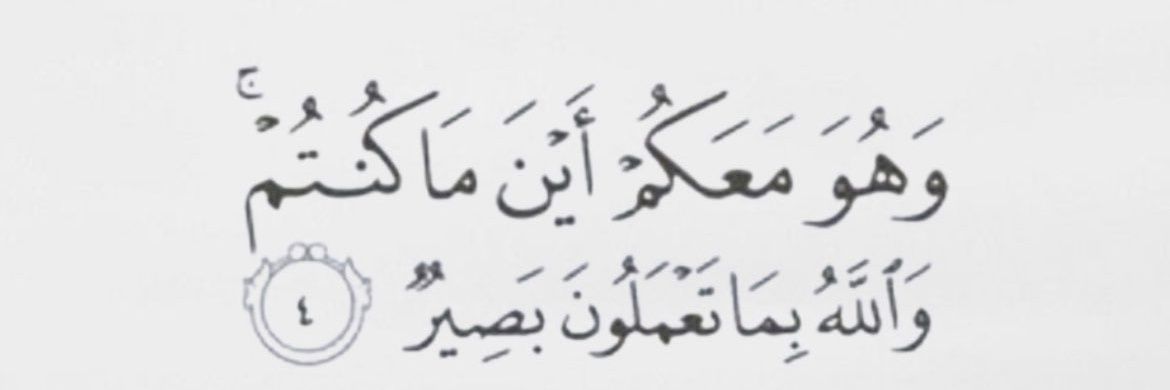 وَهُوَ مَعَكُمْ أَيْنَ مَا كُنتُمْ ۚ
وَٱللَّهُ بِمَا تَعْمَلُونَ بَصِيرٌ ٤